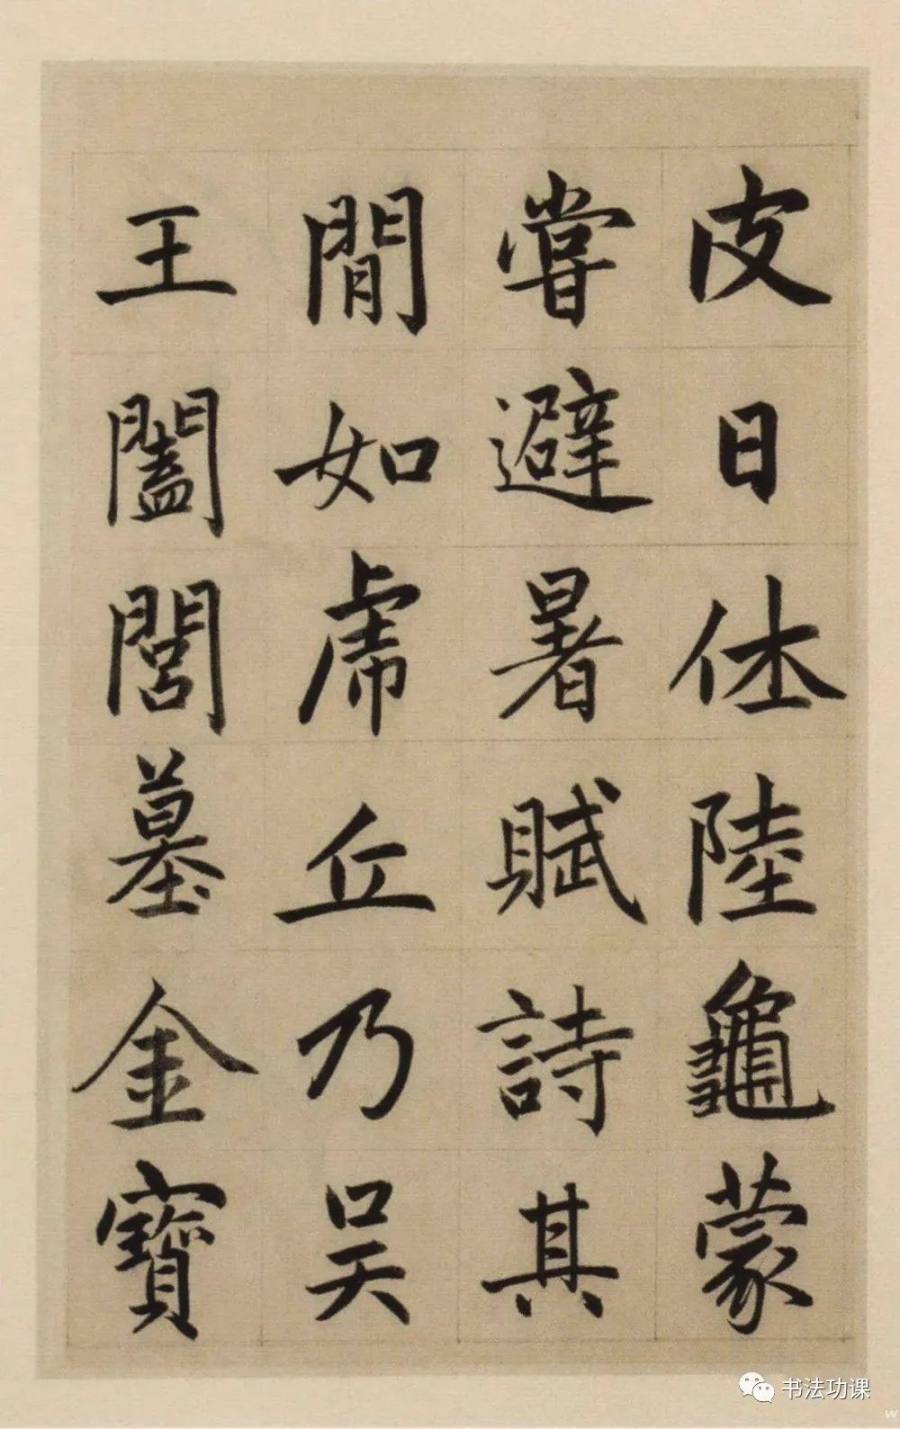 皮日休陸龜蒙
嘗避暑賦詩其
間如虎丘乃吳
王闔閭墓金寶
书法功课